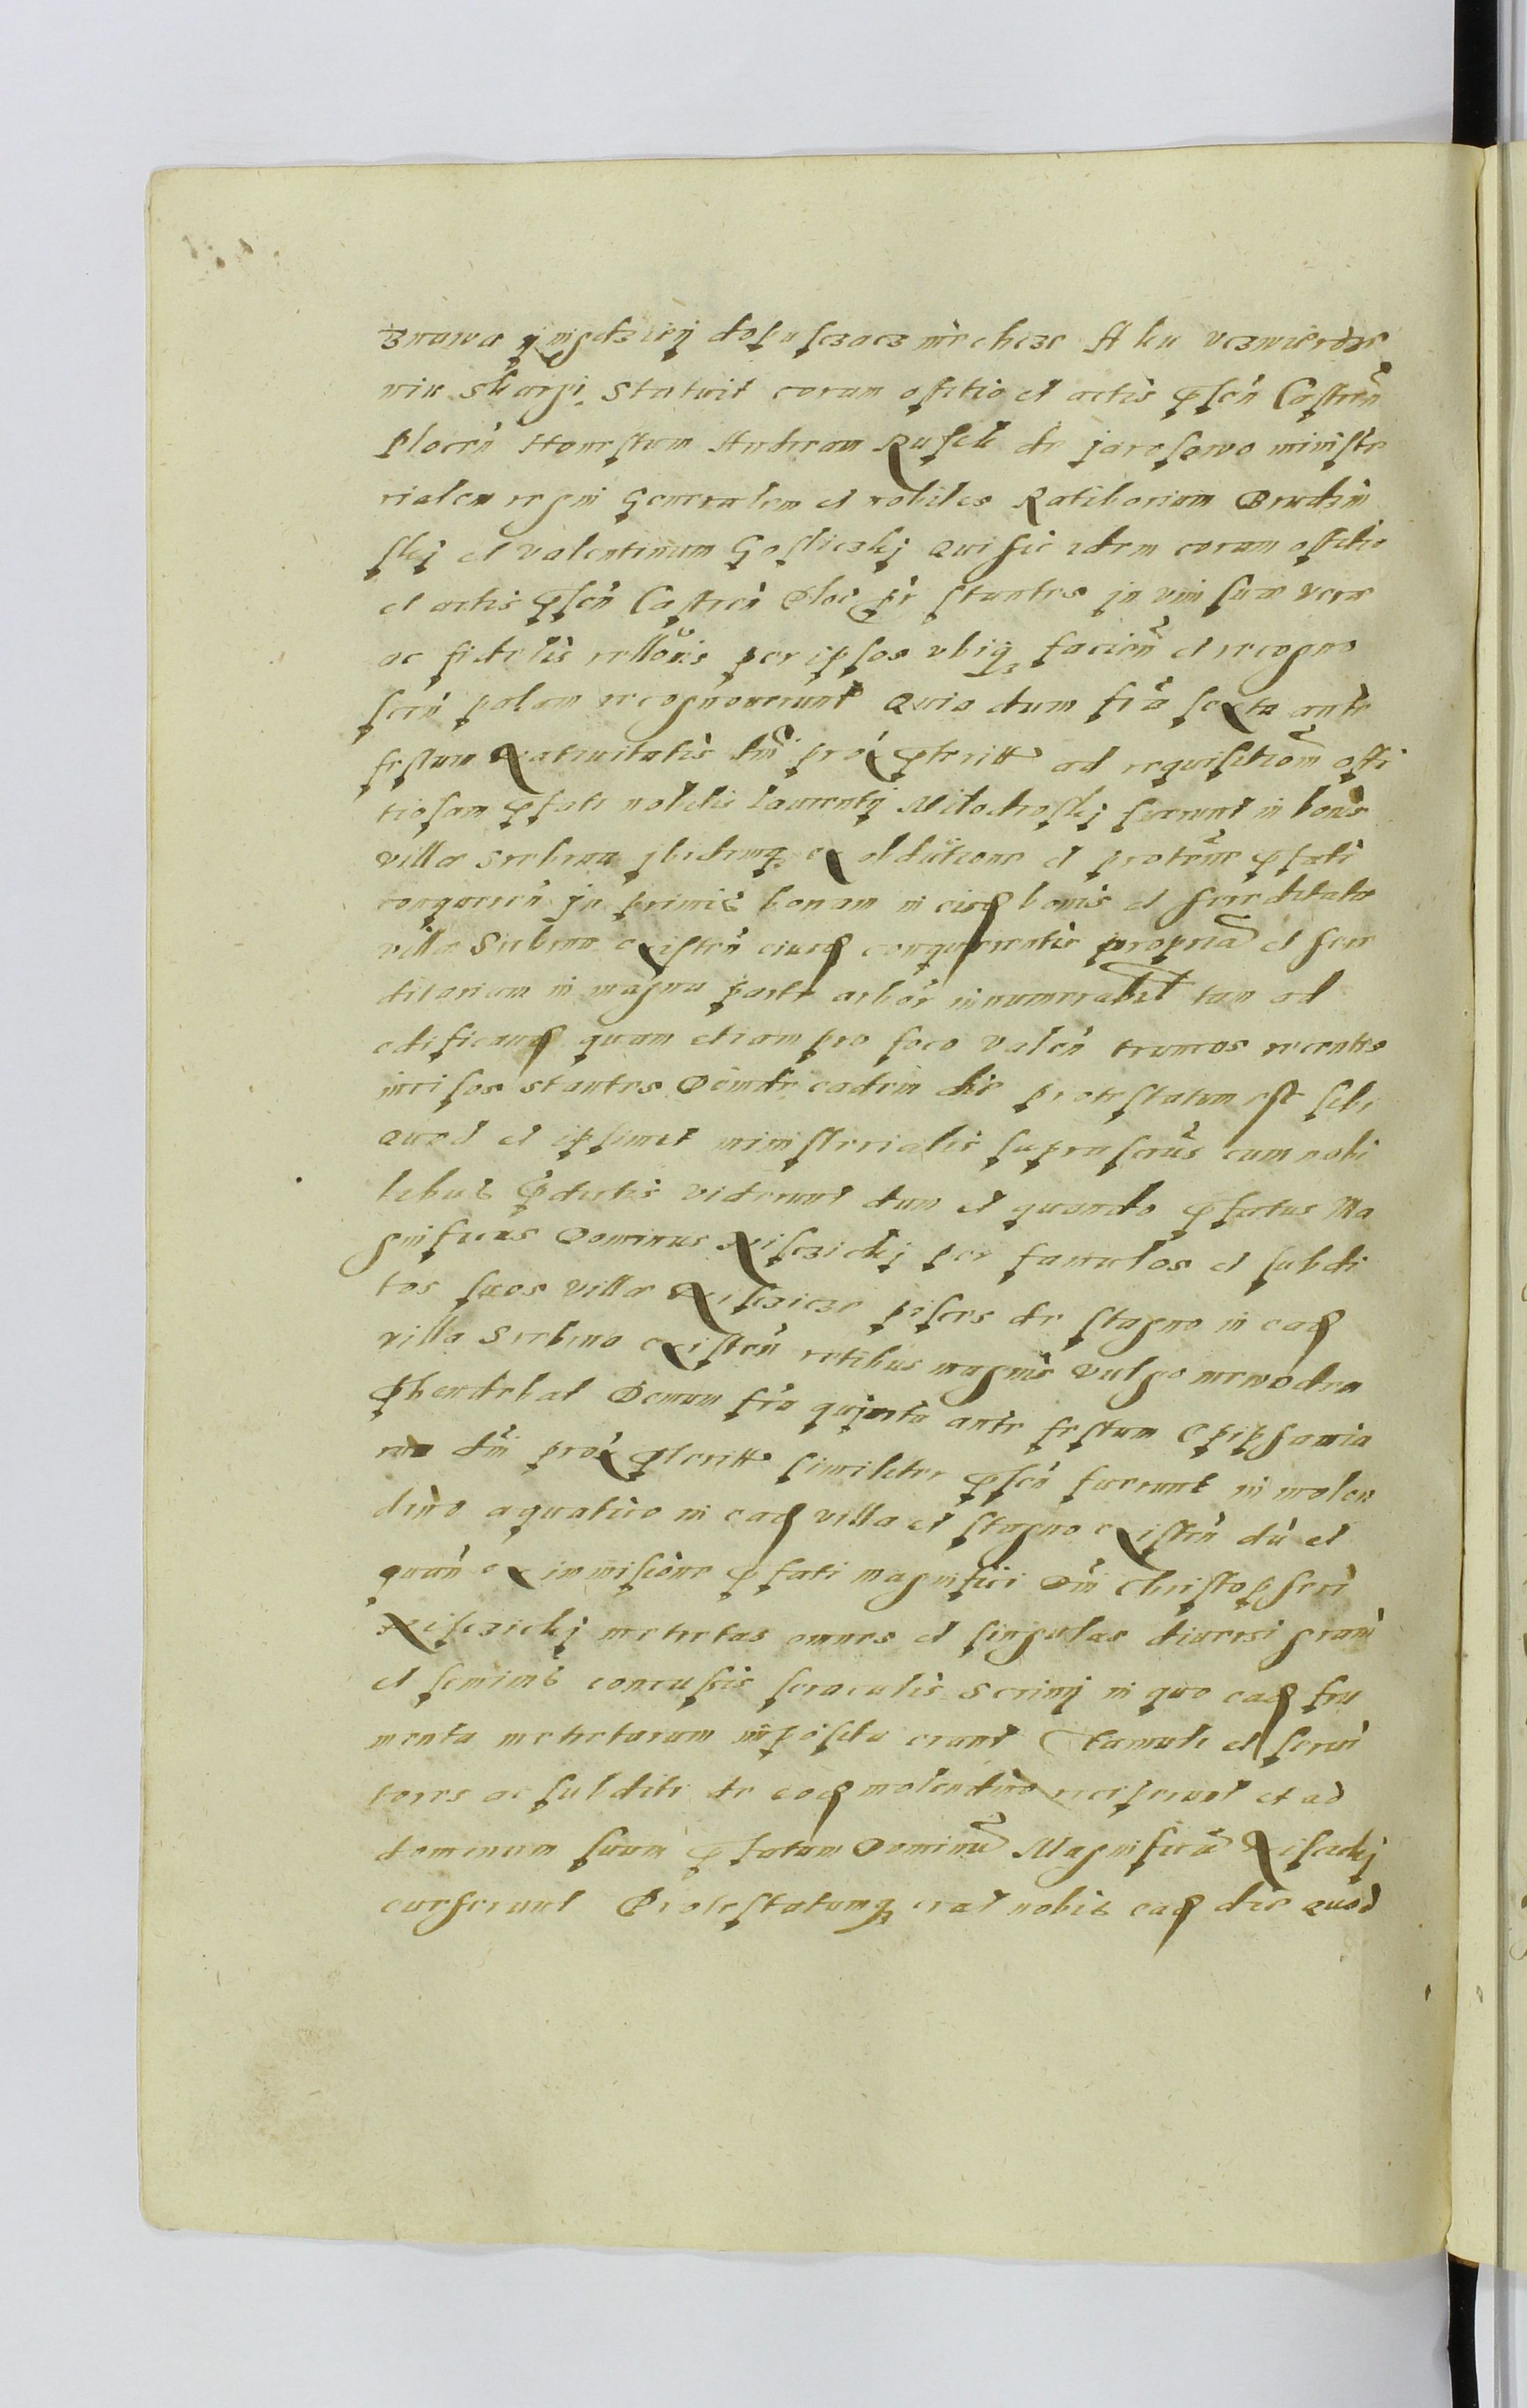 znawa y nigdziej dopusczacz niechcze A ku vczwierdze
niu skargi. Statuit coram officio et actis pñsen Castreñ
Plocen Honestum Andream Rusek de Jarosewo ministe
rialem regni Generalem et nobiles Ratiborium Brudzin
skj et Valentinum Gosliczkj Qui sic idem coram officio
et actis pñsen Castren Ploc pr stantes in vim suæ veræ
ac fidelis rellonis per ipsos vbiq facien et recogno
scen palam recognouerunt Quia dum fria sexta ante
festum Natiuitatis dni prox pteritt ad requisitiom offi
tiosam pfati nobilis Laurentij Milodroskj fuerunt in bonis
villæ Srebrna jbidemq ex obductione et protone pfati
conqueren In primis bonam in eisd bonis et hæreditate
villæ Srebrna existen eiusd conquerentis propria et here
ditariam in magna parte arbor innumerabil tam ad
edificand quam etiam pro foco valen truncos recentes
incisos stantes Deinde eadem die protestatum est sibi
Quod et ipsimet ministerialis suprascrus cum nobi
libus pdictis viderunt dum et quando pfatus Ma
gnificus Dominus Nisczickj per famulos et subdi
tos suos villæ Nisczicze pisces de stagno in ead
villa Srebrna existen retibus magnis vulgo niewodem
phendebat Demum fria quinta ante festum Epiphania
rum dni prox pteritt similiter pñsen fuerunt in molen
dino aquatico in ead villa et stagno existen du et
quan ex inmisione pfati magnifici dni Christopheri
Nisczickj metretas omnes et singulas diuersi grani
et seminis concussis seraculis scrinij in quo ead fru
menta metretarum imposita erant famuli et serui
tores ac subditi de eod molendino receperunt et ad
dominum suum pfatum Dominu Magnificu Nisczickj
euexerunt Protestatumq erat nobis ead die Quod